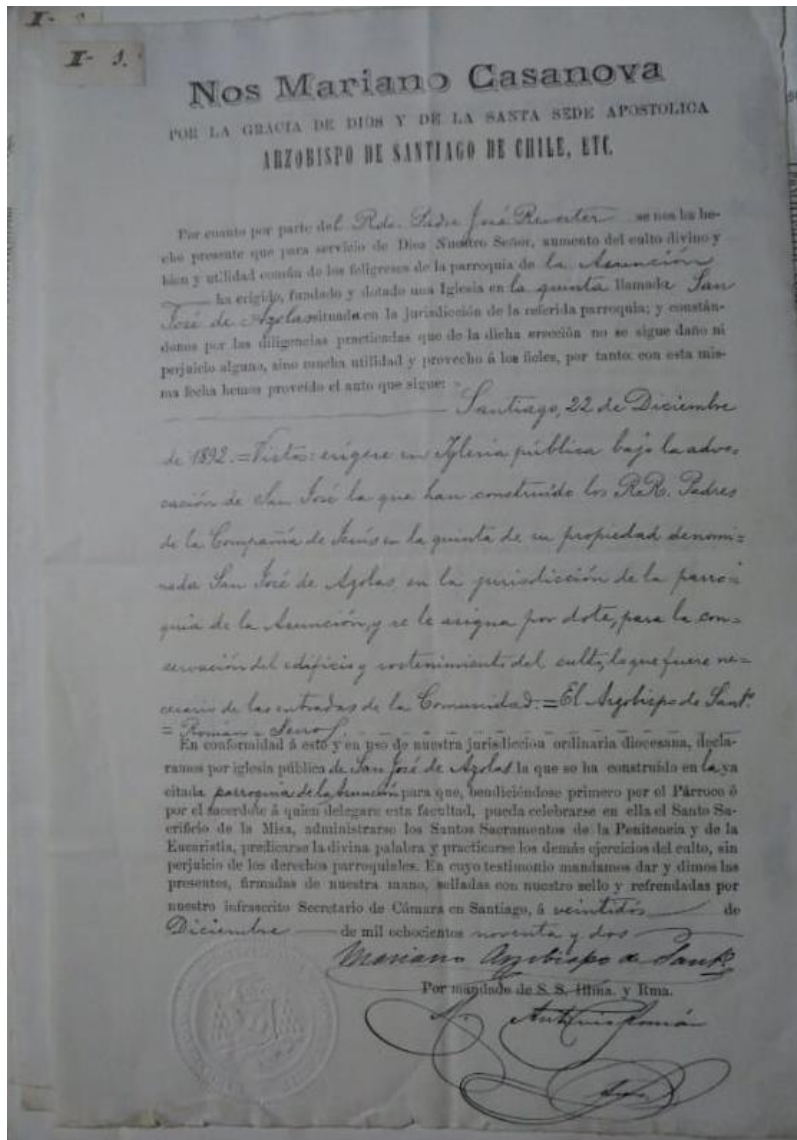 I- 1.
Nos Mariano Casanova
POR LA GRACIA DE DIOS Y DE LA SANTA SEDE APOSTOLICA
ARZOBISPO DE SANTIAGO DE CHILE, ETC.
Por cuanto por parte del Rdo. Padre José Reverter se nos ha he-
cho presente que para servicio de Dios Nuestro Señor, aumento del culto divino y
bien y utilidad común de los feligreses de la parroquia de la Asunción
ha erigido, fundado y dotado una Iglesia en la quinta llamada San
José de Azolas situada en la jurisdicción de la referida parroquia; y constán-
donos por las diligencias practicadas que de la dicha erección no se sigue daño ni
perjuicio alguno, sino mucha utilidad y provecho á los fieles, por tanto: con esta mis-
ma fecha hemos proveído el auto que sigue:
Santiago, 22 de Diciembre
de 1892.=Vistos: erígese en Iglesia pública bajo la advo-
cación de San José la que han construido los R.R. Padres
de la Compañía de Jesús en la quinta de su propiedad denomi=
nada San José de Azolas, en la jurisdicción de la parro=
quia de la Asunción, y se le asigna por dote, para la con=
servación del edificio y sostenimiento del culto, lo que fuere ne=
cesario de las entradas de la Comunidad.=El Arzobispo de Santº.
= Román, Secro.
En conformidad á esto y en uso de nuestra jurisdicción ordinaria diocesana, decla-
ramos por iglesia pública de San José de Azolas la que se ha construído en la ya
citada parroquia de la Asunción para que, bendiciéndose primero por el Párroco ó
por el sacerdote á quien delegare esta facultad, pueda celebrarse en ella el Santo Sa-
crificio de la Misa, administrarse los Santos Sacramentos de la Penitencia y de la
Eucaristia, predicarse la divina palabra y practicarse los demás ejercicios del culto, sin
perjuicio de los derechos parroquiales. En cuyo testimonio mandamos dar y dimos las
presentes, firmadas de nuestra mano, selladas con nuestro sello y refrendadas por
nuestro infrascrito Secretario de Cámara en Santiago, á veintidós de
Diciembre de mil ochocientos noventa y dos
Mariano Arzobispo de Santº.
Por mandado de S. S. Iltma. y Rma.
Román